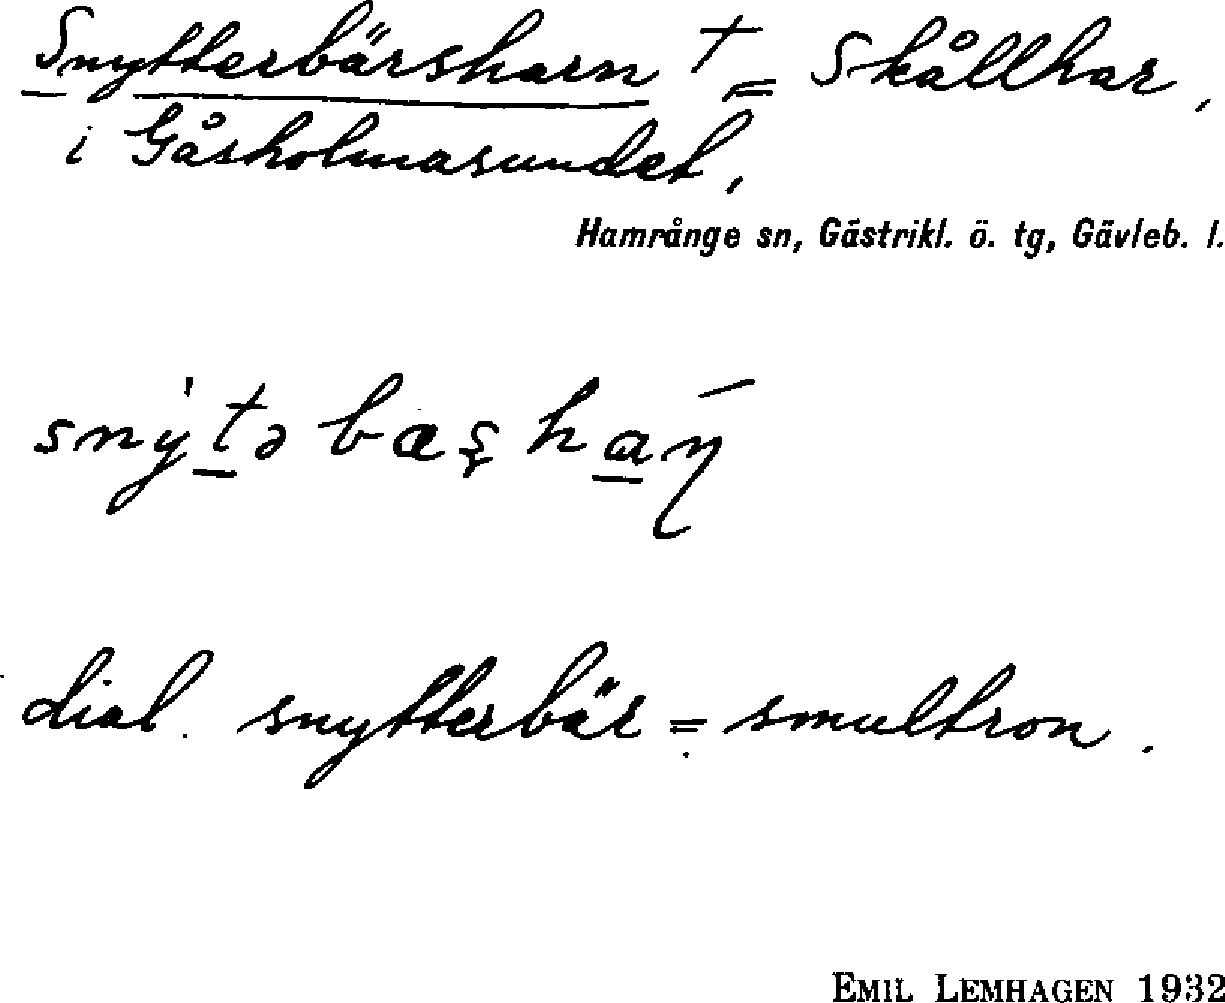 Snytterbärsharn † = Skållhar,
i Gåsholmasundet,
Hamrånge sn, Gästrikl. ö. tg, Gävleb. l.
dial. snytterbär = smultron.
EMIL LEMHAGEN 1932